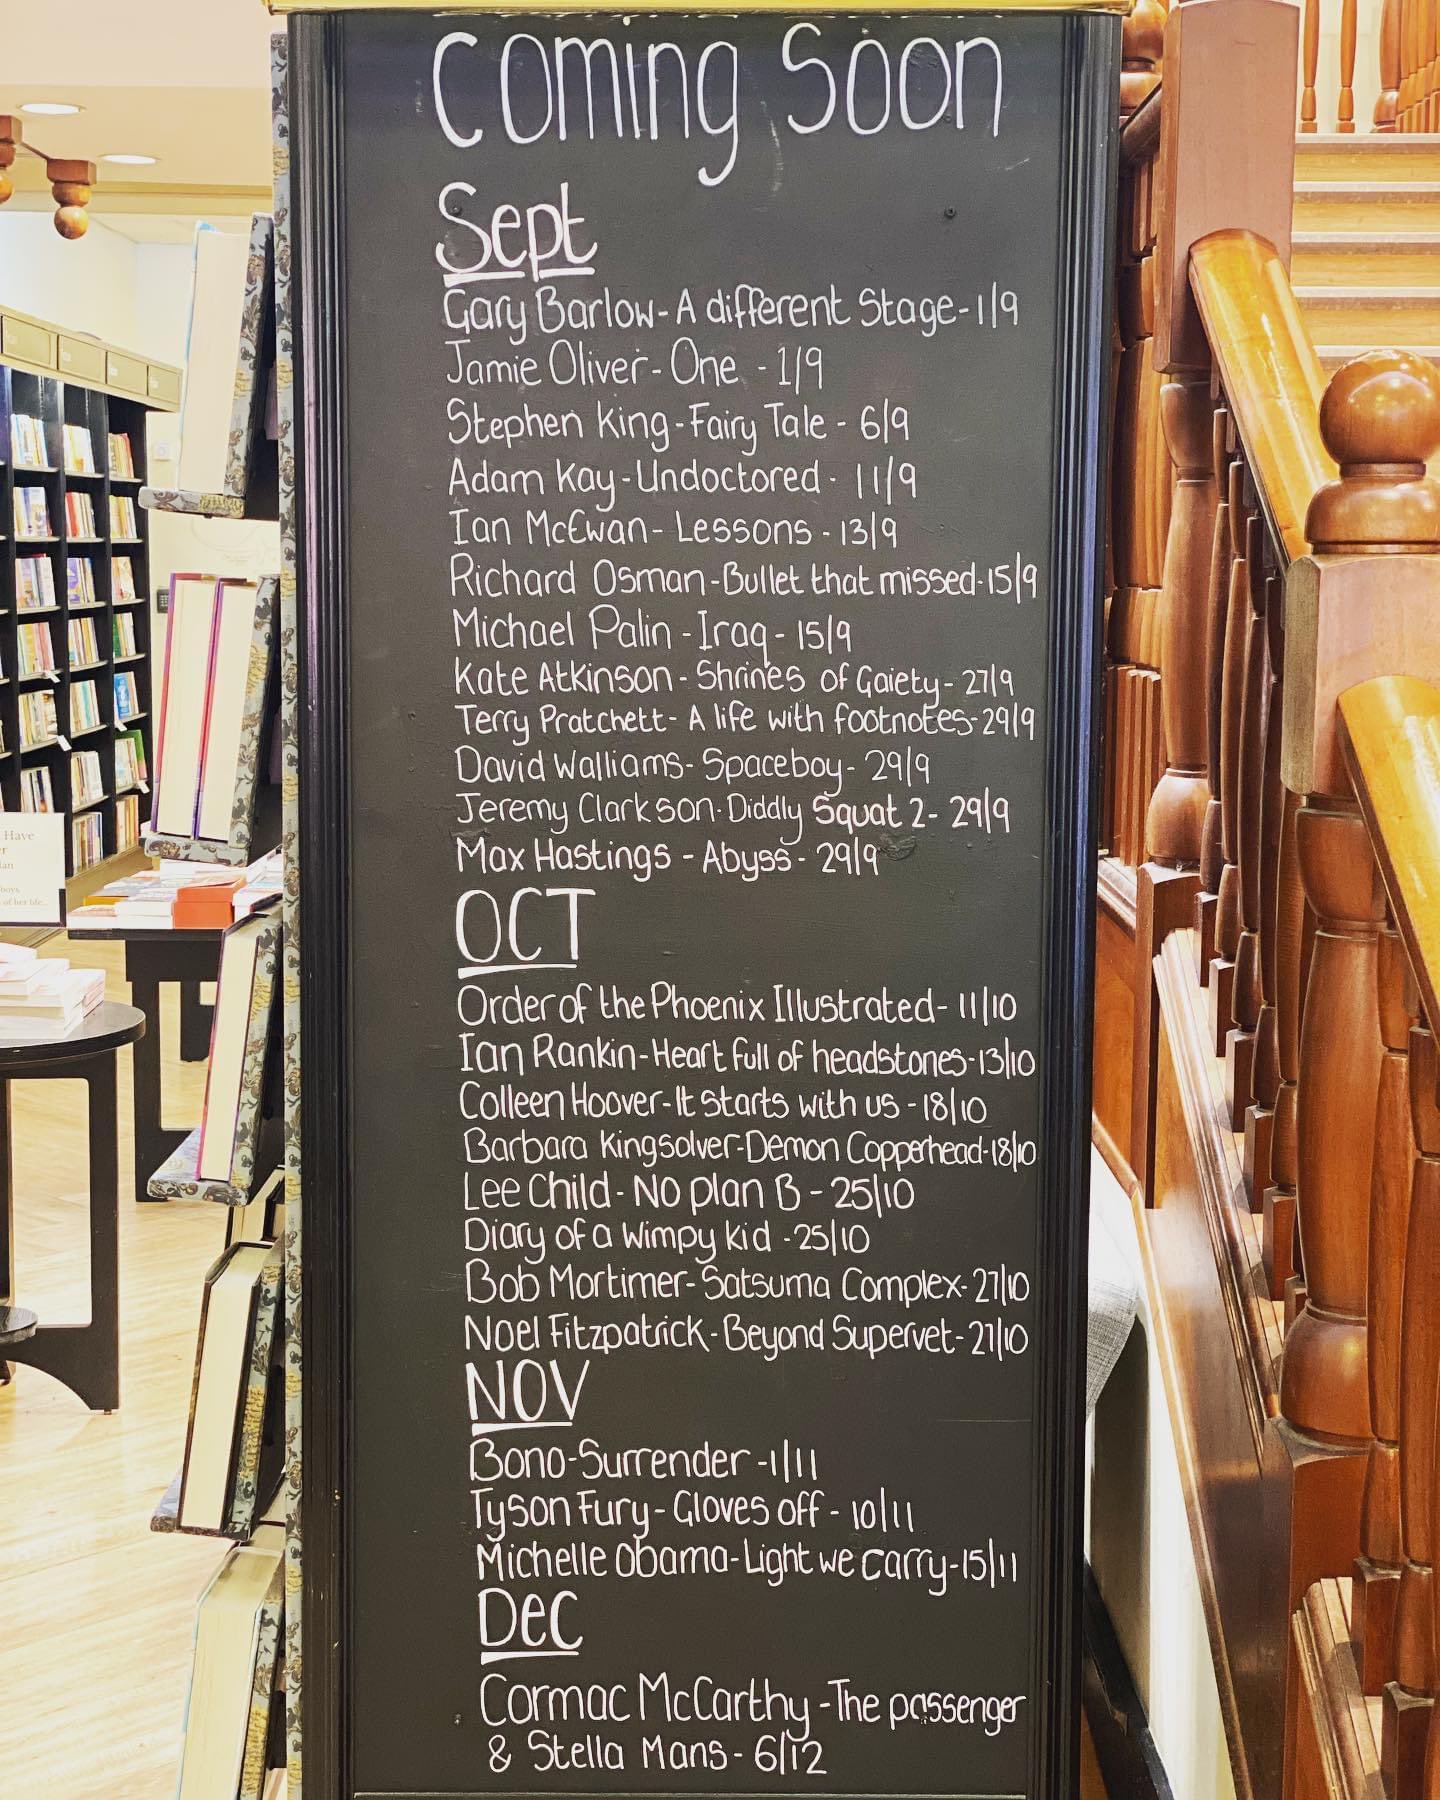 Coming Soon
Sept
Gary Barlow - A different Stage - 1/9
Jamie Oliver - One - 1/9
Stephen King - Fairy Tale - 6/9
Adam Kay - Undoctored - 11/9
Ian McEwan - Lessons - 13/9
Richard Osman - Bullet that missed - 15/9
Michael Palin - Iraq - 15/9
Kate Atkinson - Shrines of Gaiety - 27/9
Terry Pratchett - A life with footnotes - 29/9
David Walliams - Spaceboy - 29/9
Jeremy Clarkson - Diddly Squat 2 - 29/9
Max Hastings - Abyss - 29/9
OCT
Order of the Phoenix Illustrated - 11/10
Ian Rankin - Heart full of headstones - 13/10
Colleen Hoover - It starts with us - 18/10
Barbara Kingsolver - Demon Copperhead - 18/10
Lee Child - No plan B - 25/10
Diary of a Wimpy kid - 25/10
Bob Mortimer - Satsuma Complex - 27/10
Noel Fitzpatrick - Beyond Supervet - 27/10
NOV
Bono - Surrender - 1/11
Tyson Fury - Gloves off - 10/11
Michelle Obama - Light we carry - 15/11
Dec
Cormac McCarthy - The passenger
& Stella Mans - 6/12
Have
of her life...